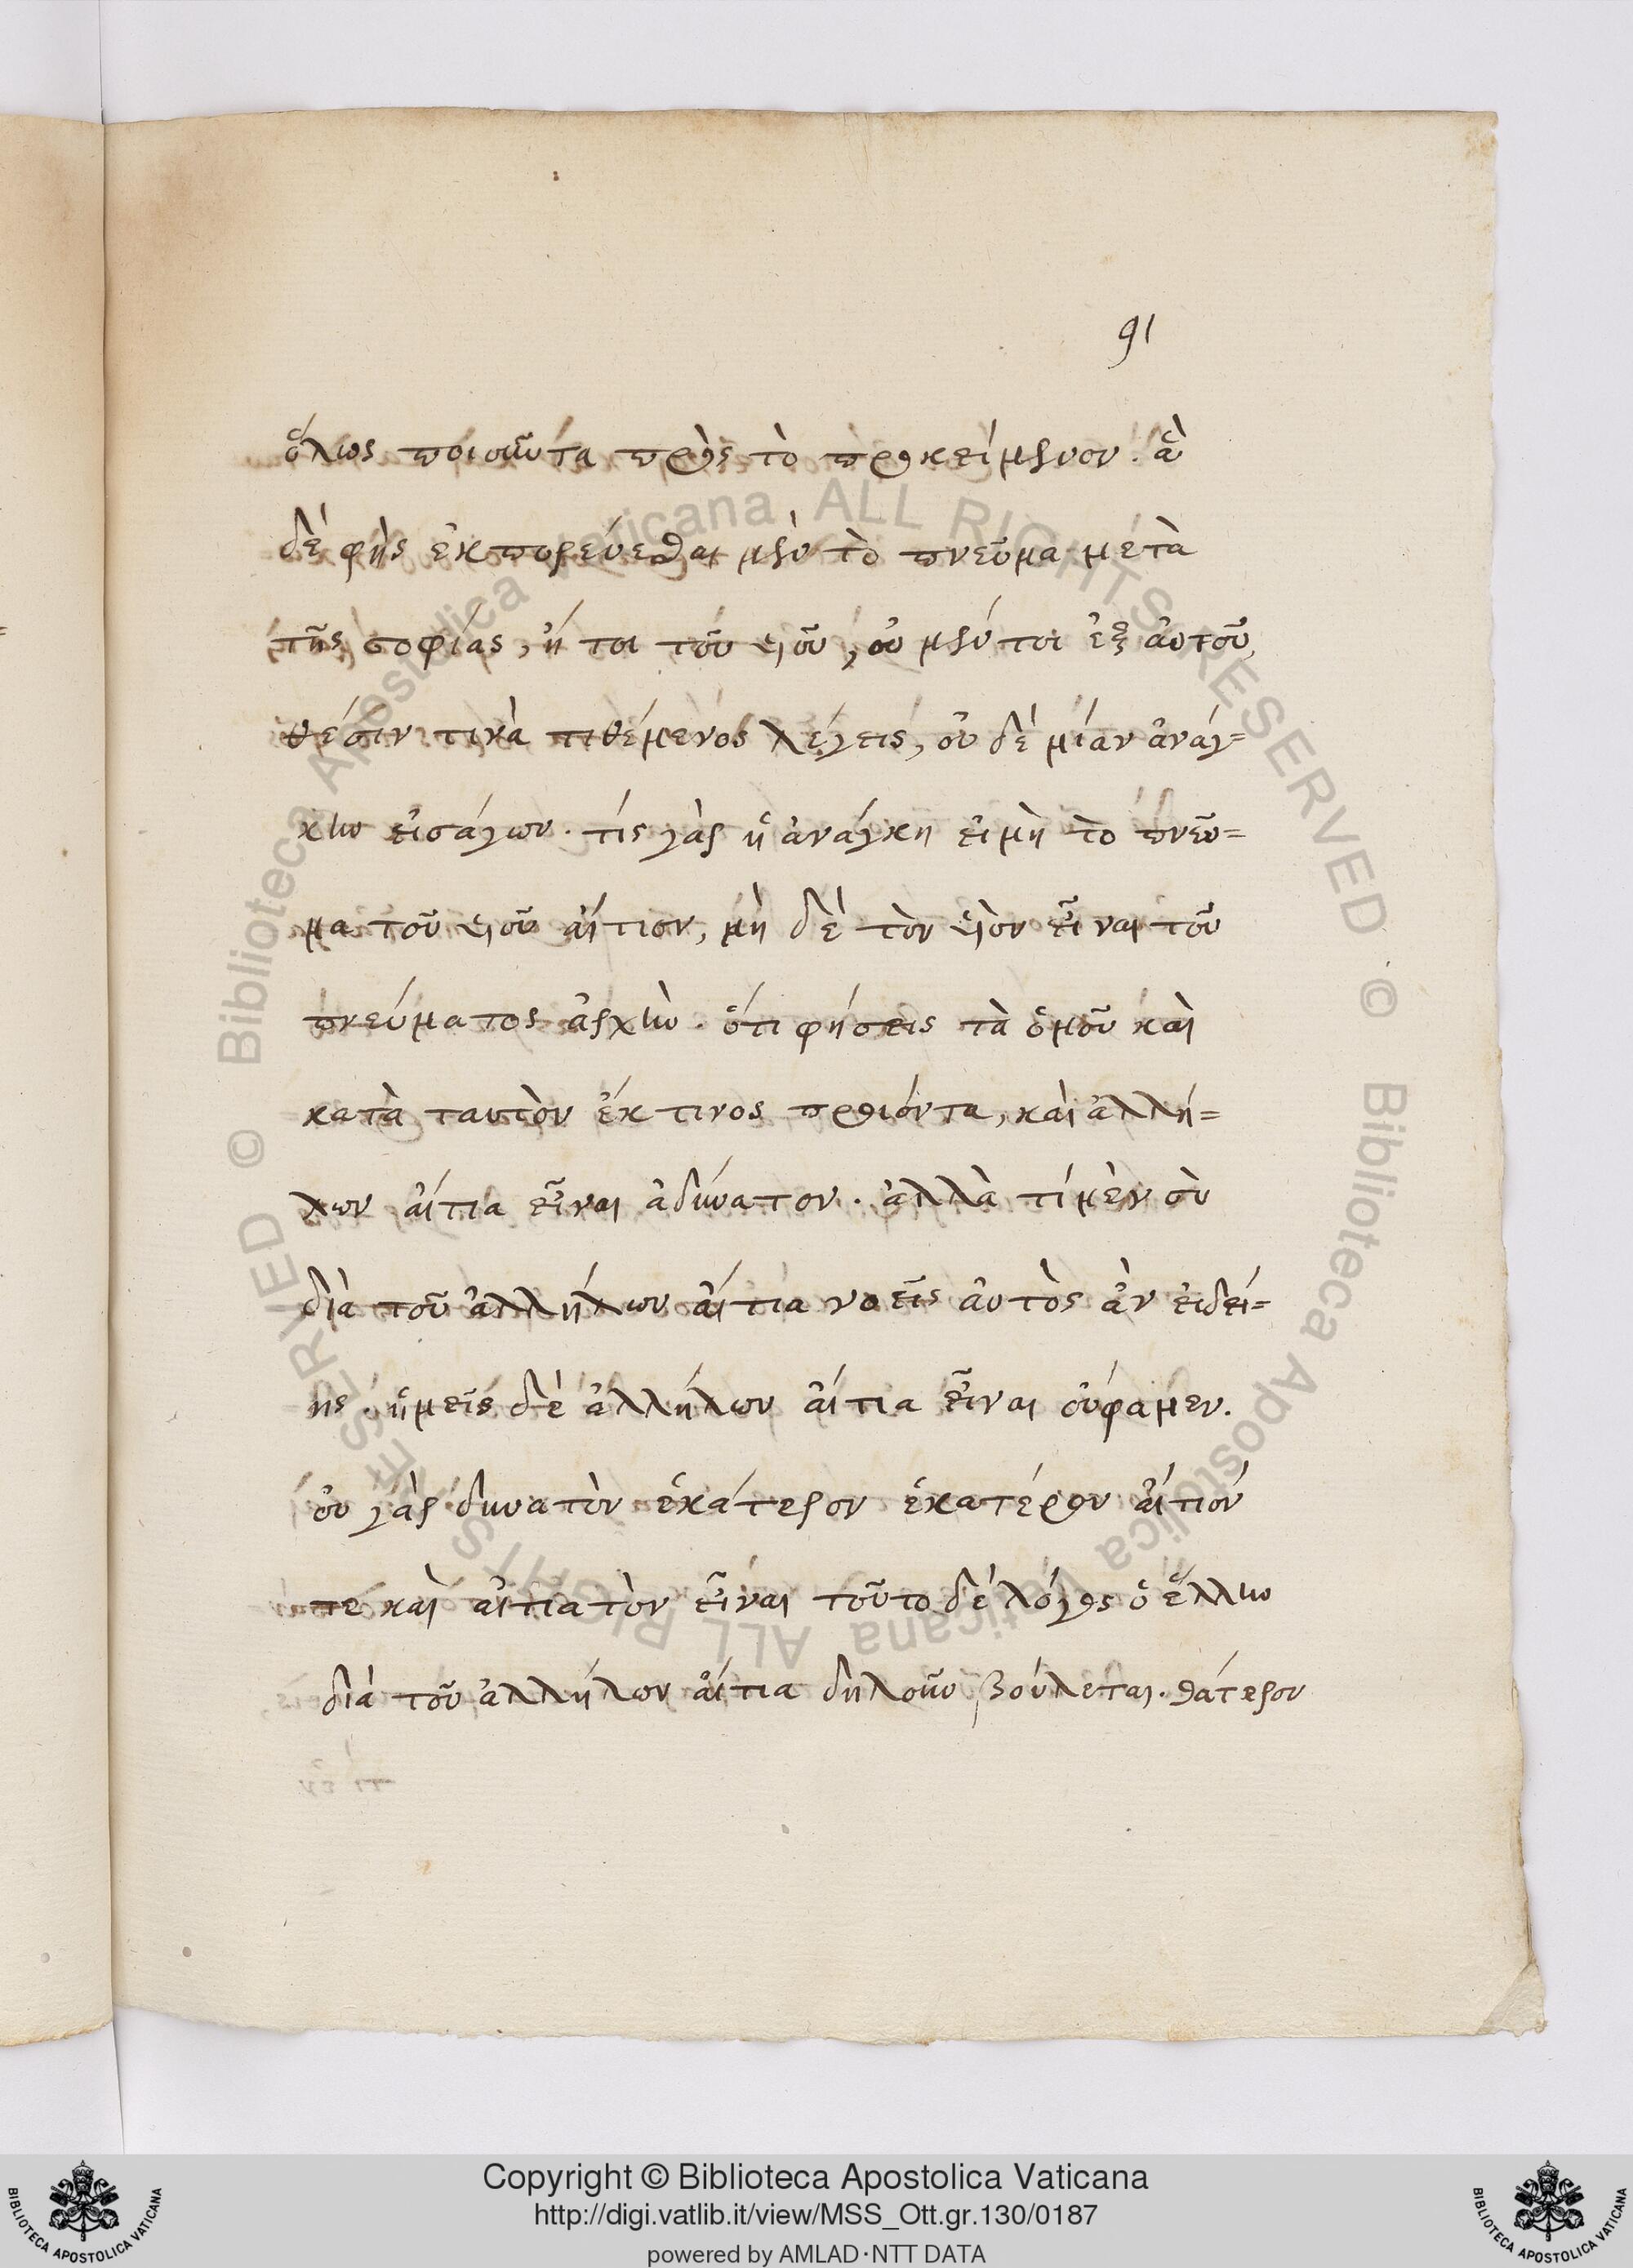 91
ὅλως ποιοῦντα πρὸς τὸ προκείμενον. ἃ
δὲ φῂς ἐκπορεύεσθαι μὲν τὸ πνεῦμα μετὰ
τῆς σοφίας, ἤτοι τοῦ υἱοῦ, οὐ μέντοι ἐξ αὐτοῦ,
θέσιν τινὰ τιθέμενος λέγεις, οὐδὲ μίαν ἀνάγ=
κην εἰσάγων. τίς γὰρ ἡ ἀνάγκη εἰ μὴ τὸ πνεῦ=
μα τοῦ υἱοῦ αἴτιον, μὴ δὲ τὸν υἱὸν εἶναι τοῦ
πνεύματος ἀρχὴν. ὅτι φήσεις τὰ ὁμοῦ καὶ
κατὰ ταυτὸν ἔκ τινος προιόντα, καὶ ἀλλή=
λων αἴτια εἶναι ἀδύνατον. ἀλλὰ τί μὲν σὺ
διὰ τοῦ ἀλλήλων αἴτια νοεῖς αὐτὸς ἂν εἰδεί=
ης. ἡμεῖς δὲ ἀλλήλων αἴτια εἶναι οὔφαμεν.
οὐ γὰρ δυνατὸν ἑκάτερον ἑκατέρου αἴτιόν
τε καὶ αἰτιατὸν εἶναι τοῦτο δὲ λόγος ὁ ἕλλην
διὰ τοῦ ἀλλήλων αἴτια δηλοῦν βούλεται. θάτερον
Copyright © Biblioteca Apostolica Vaticana
http://digi.vatlib.it/view/MSS_Ott.gr.130/0187
powered by AMLAD·NTT DATA